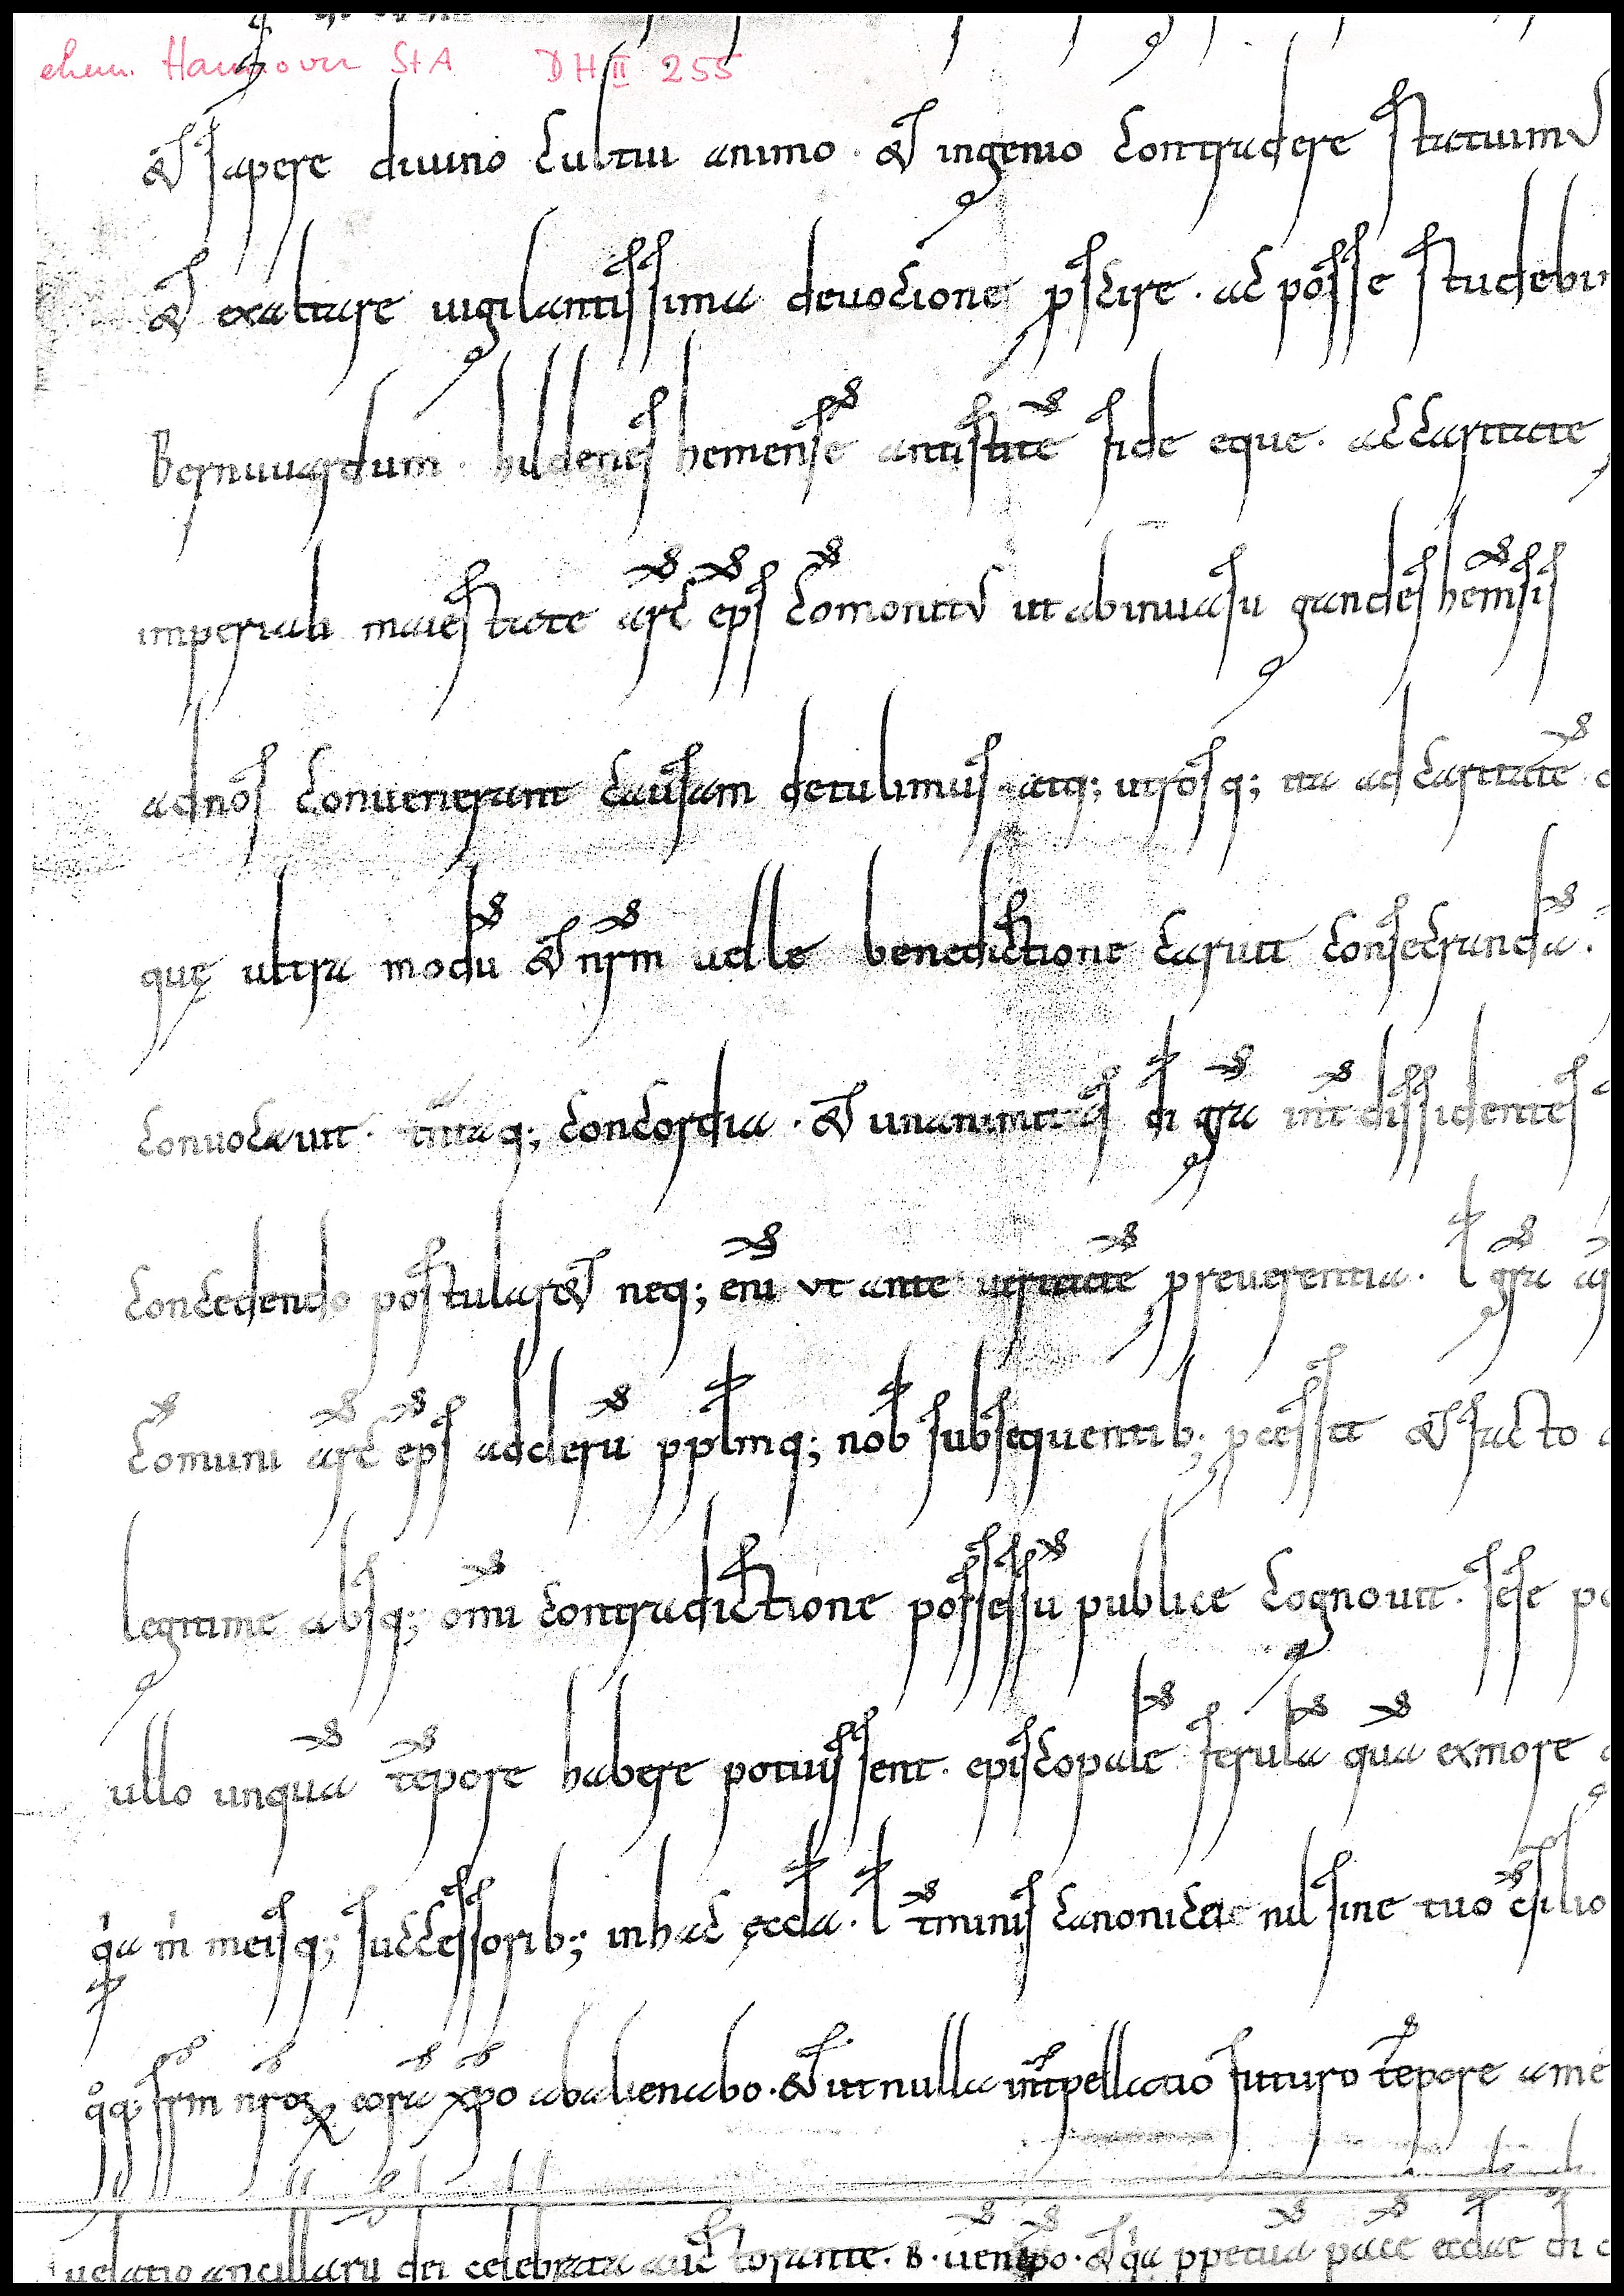 ehem. Hannover StA DH II 255
& sapere divino cultui animo · & ingenio contradere statuimus
& exaltare uigilantissima deuocione pscire · ac posse studebi
Bernuuardum · hildenes hemense antistite fide eque · ac caritate
imperiali maiestate arc eps comonitus ut ab inuasu gandes hemsis
ad nos conuenerant causam detulimus · atq; utrosq; ita ad caritate
quę ultra modu & nrm uelle benedictione caruit consecranda ·
conuocauit · q; concordia · & unanimitas di gra int dissidentes
concedendo postular& neq; eni ut ante ueritate preuerentia · l gra
comuni arc eps adcleru pplmq; nob subsequentib; pcessit & facto
legitime absq; omi contradictione possessu publice cognouit · sese
ullo unqua tepore habere potuissent · episcopale ferula qua ex more
qa m meisq; successorib; in hac ęccla · l tminis canonice nil sine tuo csilio
frm nroꝝ cora xpo abalienabo · & ut nulla intpellatio futuro tepore a me
uelatio ancillaru dei celebrata auctorante · B · uen epo · & qa ppetua pace ecclae di